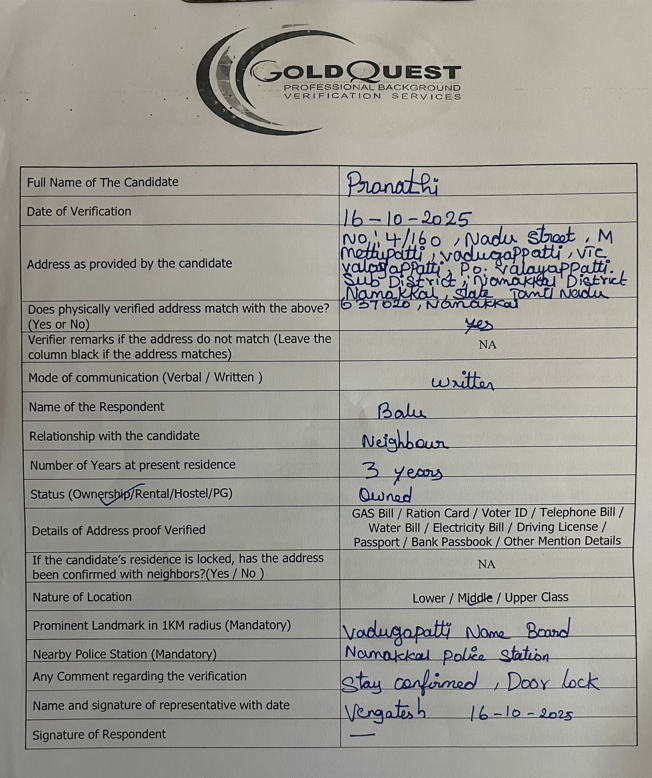 GOLDQUEST
PROFESSIONAL BACKGROUND
VERIFICATION SERVICES
Full Name of The Candidate
Pranathi
Date of Verification
16-10-2025
Address as provided by the candidate
No: 4/160, Nadu Street, M
mettupatti, vadugappatti, vTc
valayappatti, Po: valayappatti.
Sub District, Namakkal District
Namakkal, State Tamil Nadu
637020, Namakkal
Does physically verified address match with the above?
(Yes or No)
yes
Verifier remarks if the address do not match (Leave the
column black if the address matches)
NA
Mode of communication (Verbal / Written )
written
Name of the Respondent
Balu
Relationship with the candidate
Neighbour
Number of Years at present residence
3 years
Status (Ownership/Rental/Hostel/PG)
Owned
Details of Address proof Verified
GAS Bill / Ration Card / Voter ID / Telephone Bill /
Water Bill / Electricity Bill / Driving License /
Passport / Bank Passbook / Other Mention Details
If the candidate's residence is locked, has the address
been confirmed with neighbors?(Yes / No )
NA
Nature of Location
Lower / Middle / Upper Class
Prominent Landmark in 1KM radius (Mandatory)
Vadugapatti Name Board
Nearby Police Station (Mandatory)
Namakkal Police Station
Any Comment regarding the verification
Stay confirmed, Door lock
Name and signature of representative with date
Vengatesh 16-10-2025
Signature of Respondent
—